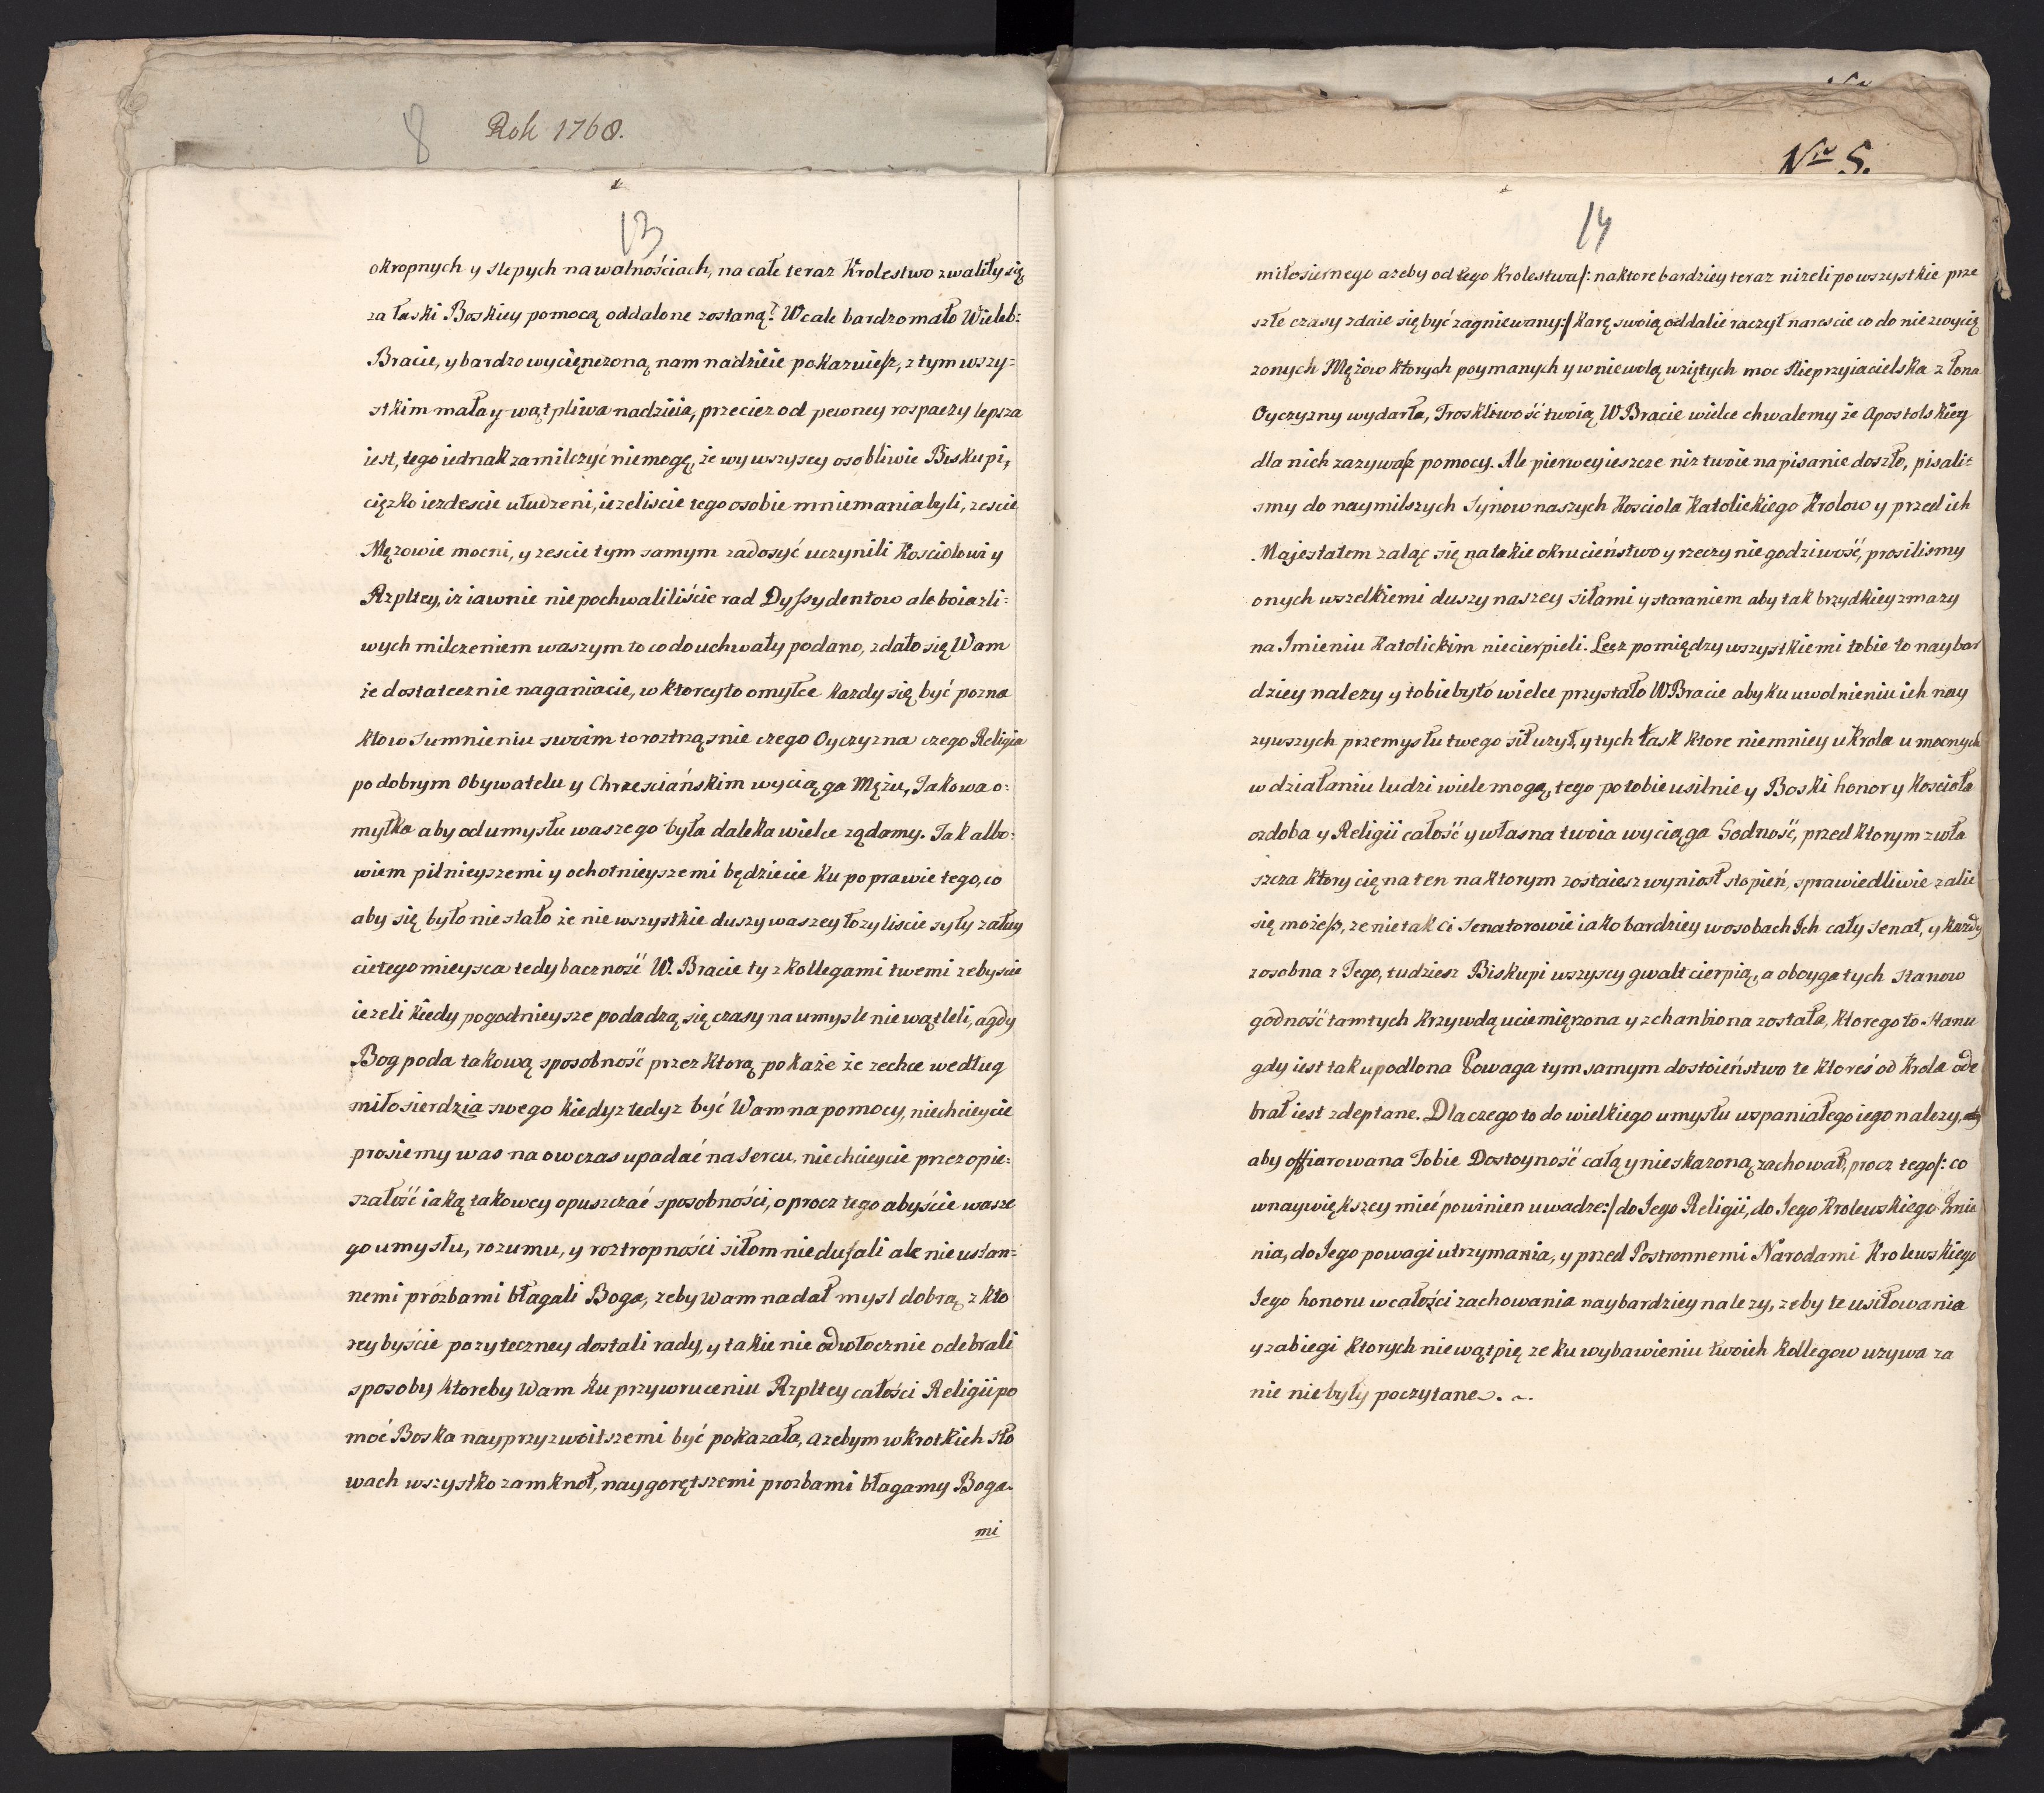 8 Rok 1768.
13
okropnych y slepych nawałnościach, na całe teraz Krolestwo zwaliły się
za łaski Boskiey pomocą oddalone zostaną? Wcale bardzo mało Wieleb:
Bracie, y bardzo wycięnczoną nam nadzieie pokazuiesz, z tym wszy=
stkim mała y wątpliwa nadzieia, przeciez od pewney rospaczy lepsza
iest, tego iednak zamilczyć niemogę, że wy wszyscy osobliwie Biskupi,
cięzko iezdescie ułudzeni, iezeliscie tego o sobie mniemania byli, zescie
Męzowie mocni, y zescie tym samym zadosyć uczynili Kosciolowi y
Rzpltey, iz iawnie nie pochwaliliście rad Dyssydentow ale boiazli=
wych milczeniem waszym to co do uchwały podano, zdało się Wam
że dostatecznie naganiacie, w ktoreyto omyłce kazdy się być pozna
kto w Sumnieniu swoim to roztrząsnie czego Oyczyzna czego Religia
po dobrym Obywatelu y Chrzesciańskim wyciąga Mężu, Jakowa o=
myłka aby od umysłu waszego była daleka wielce ządamy. Jak albo=
wiem pilnieyszemi y ochotnieyszemi będziecie ku poprawie tego, co
aby się było nie stało że nie wszystkie duszy waszey łozyliscie syły załuy
cie tego mieysca tedy baczność W. Bracie ty z kollegami twemi zebyscie
iezeli kiedy pogodnieysze podadzą się czasy na umysle nie wątleli, a gdy
Bog poda takową sposobność przez ktorą pokaże że zechce według
miłosierdzia swego kiedyz tedyz być Wam na pomocy, niechcieycie
prosiemy was na owczas upadać na sercu, niechcieycie przez opie=
szałość iaką takowey opuszczać sposobności, oprocz tego abyście wasze
go umysłu, rozumu, y roztropności siłom nie dufali ale nie ustan=
nemi prozbami błagali Boga, zeby wam nadał mysl dobrą z kto
rey byście pozyteczney dostali rady, y takie nie odwłocznie odebrali
sposoby ktoreby Wam ku przywruceniu Rzpltey całości Religii po
moc Boska nayprzyzwoitszemi być pokazała, azebym w krotkich sło
wach wszystko zamknoł, naygorętszemi prozbami błagamy Boga
mi
Nro 5.
14
miłosiernego azeby od tego Krolestwa /: na ktore bardziey teraz nizeli po wszystkie prze
szłe czasy zdaie się być zagniewany :/ karę swoią oddalic raczył narescie co do niezwycię
zonych Mężow ktorych poymanych y w niewolą wziętych moc Nieprzyiacielska z łona
Oyczyzny wydarła, Troskliwość twoią W Bracie wielce chwalemy że Apostolskiey
dla nich zazywasz pomocy. Ale pierwey ieszcze niz twoie napisanie doszło, pisali=
smy do naymilszych Synow naszych Kosciola Katolickiego Krolow y przed ich
Majestatem zaląc się na takie okrucieństwo y rzeczy niegodziwość, prosilismy
onych wszelkiemi duszy naszey siłami y staraniem aby tak brzydkiey zmazy
na Imieniu Katolickim niecierpieli. Lecz pomiędzy wszystkiemi tobie to naybar
dziey nalezy y tobie było wielce przystało W Bracie aby ku uwolnieniu ich nay
zywszych przemysłu twego sił uzył, y tych łask ktore niemniey u Krola u mocnych
w działaniu ludzi wiele mogą, tego po tobie usilnie y Boski honor y Kościoła
ozdoba y Religii całość y własna twoia wyciąga Godność, przed ktorym zwła
szcza ktory cię na ten na ktorym zostaiesz wyniosł stopień, sprawiedliwie zalić
się możesz, ze nie tak ci Senatorowie iako bardziey w osobach Ich cały Senat, y kazdy
zosobna z Jego, tudziesz Biskupi wszyscy gwałt cierpią, a oboyga tych Stanow
godność tamtych krzywdą uciemięzona y zchanbiona została, ktorego to Stanu
gdy iest tak upodlona Powaga tym samym dostoieństwo te ktoreś od Krola ode
brał iest zdeptane. Dla czego to do wielkiego umysłu wspaniałego iego nalezy,
aby offiarowana Tobie Dostoyność całą y nieskazoną zachował, procz tego /: co
w naywiększey mieć powinien uwadze :/ do Jego Religii, do Jego Krolewskiego Imie
nia, do Jego powagi utrzymania, y przed Postronnemi Narodami Krolewskiego
Jego honoru w całości zachowania naybardziey nalezy, zeby te usiłowania
y zabiegi ktorych niewątpię ze ku wybawieniu twoich Kollegow uzywa za
nie nie były poczytane.